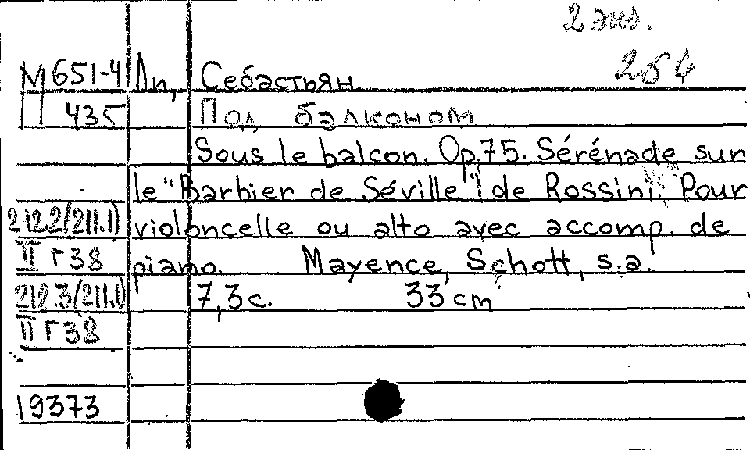 2 экз.
264
М 651-4 Ли, Себастьян.
435 Под балконом
Sous le balcon. Op.75. Sérénade sur
le "Barbier de Séville" de Rossini. Pour
212.2/211.1) violoncelle ou alto avec accomp. de
II Г 38 piano. Mayence, Schott, s.a.
212.3/211.1) 7,3 c. 33 cm
II Г 38
19373